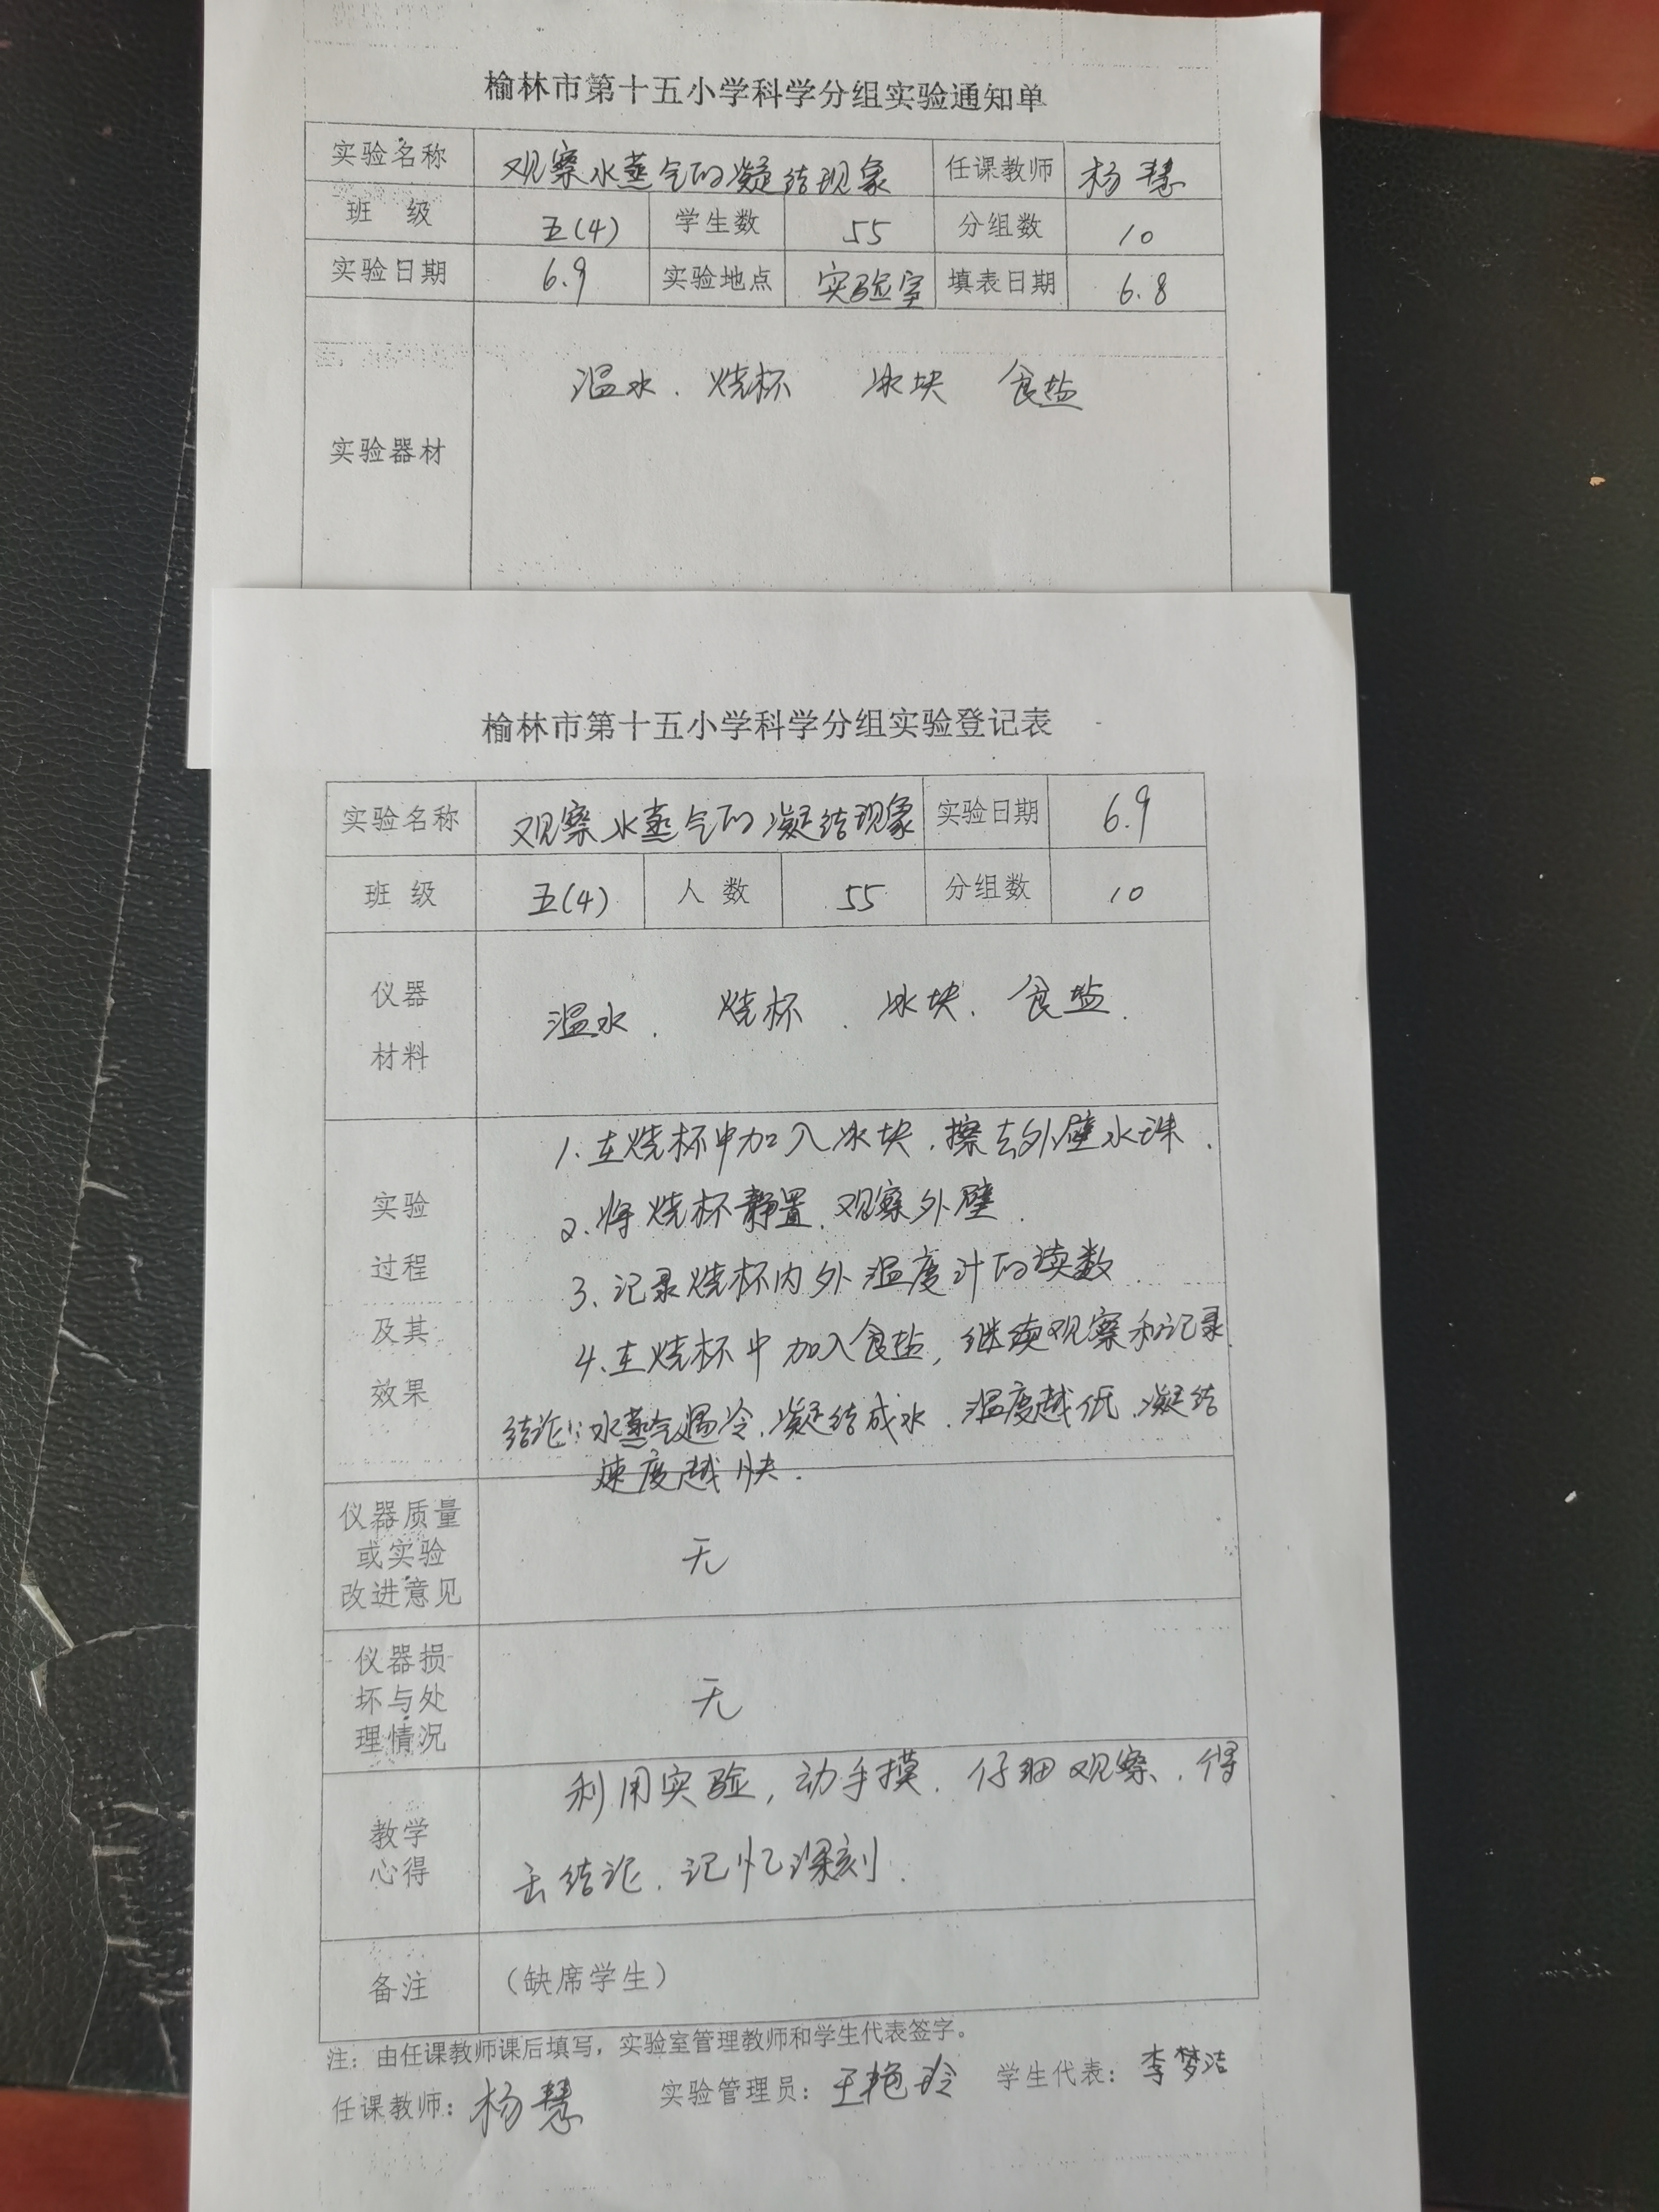 榆林市第十五小学科学分组实验通知单
实验名称 观察水蒸气的凝结现象 任课教师 杨慧
班 级 五(4) 学生数 55 分组数 10
实验日期 6.9 实验地点 实验室 填表日期 6.8
温水. 烧杯 冰块 食盐
实验器材
榆林市第十五小学科学分组实验登记表
实验名称 观察水蒸气的凝结现象 实验日期 6.9
班 级 五(4) 人 数 55 分组数 10
仪器
材料
温水. 烧杯. 冰块. 食盐.
实验
过程
及其
效果
1.在烧杯中加入冰块.擦去外壁水珠.
2.将烧杯静置.观察外壁.
3、记录烧杯内外温度计的读数
4、在烧杯中加入食盐,继续观察和记录.
结论:水蒸气遇冷.凝结成水.温度越低.凝结
速度越快.
仪器质量
或实验
改进意见
无
仪器损
坏与处
理情况
无
教学
心得
利用实验,动手摸.仔细观察.得
去结论.记忆深刻.
备注 (缺席学生)
注：由任课教师课后填写，实验室管理教师和学生代表签字。
任课教师：杨慧 实验管理员：王艳玲 学生代表：李梦洁